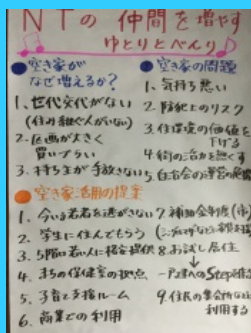 NTの 仲間を増やす
ゆとりとべんり
●空き家が
なぜ増えるか?
1、世代交代がない
(住み継ぐ人がいない)
2、区画が大きく
買いづらい
3、持ち主が手放さない
●空き家の問題
1、気持ち悪い
2、防犯上のリスク
3、住環境の価値を
下げる
4、街の活力を無くす
5、自治会の運営の
●空き家活用の提案
1、今いる若者を逃がさない
2、学生に住んでもらう
3、5階に若い人に格安提供
4、まちの保健室の拠点
5、子育て支援ルーム
6、商業での利用
7、補助金制度(市)
8、お試し居住
一戸建へのStep
9、住民の集会所などに
利用する